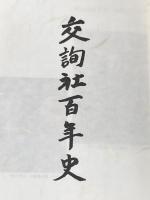 交詢社百年史